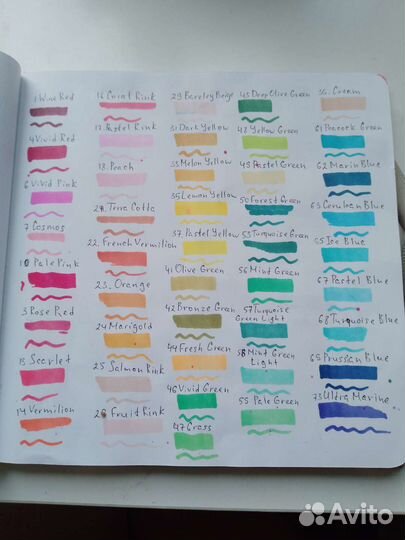 1 Wine Red
4 Vivid Red
6 Vivid Pink
7 Cosmos
10 Pale Pink
3 Rose Red
13 Scarlet
14 Vermilion
16 Coral Rink
17 Pastel Rink
18 Peach
21 Terra Cotto
22. French Vermilion
23. Orange
24 Marigold
25 Salmon Rink
26 Fruit Rink
29 Bareley Beige
31 Dark Yellow
33 Melon Yellow
35 Lemon Yellow
37 Pastel Yellow
41 Olive Green
42 Bronze Green
44 Fresh Green
46 Vivid Green
47 Grass
43 Deep Olive Green
48 Yellow Green
49 Pastel Green
50 Forest Green
53 Turquoise Green
56 Mint Green
57 Turquoise
Green Light
58 Mint Green
Light
55 Pale Green
36. Cream
61 Peacock Green
62 Marin Blue
63 Cerulean Blue
65 Ice Blue
67 Pastel Blue
68 Turquoise Blue
69 Prussian Blue
73 Ultra Marine
Avito